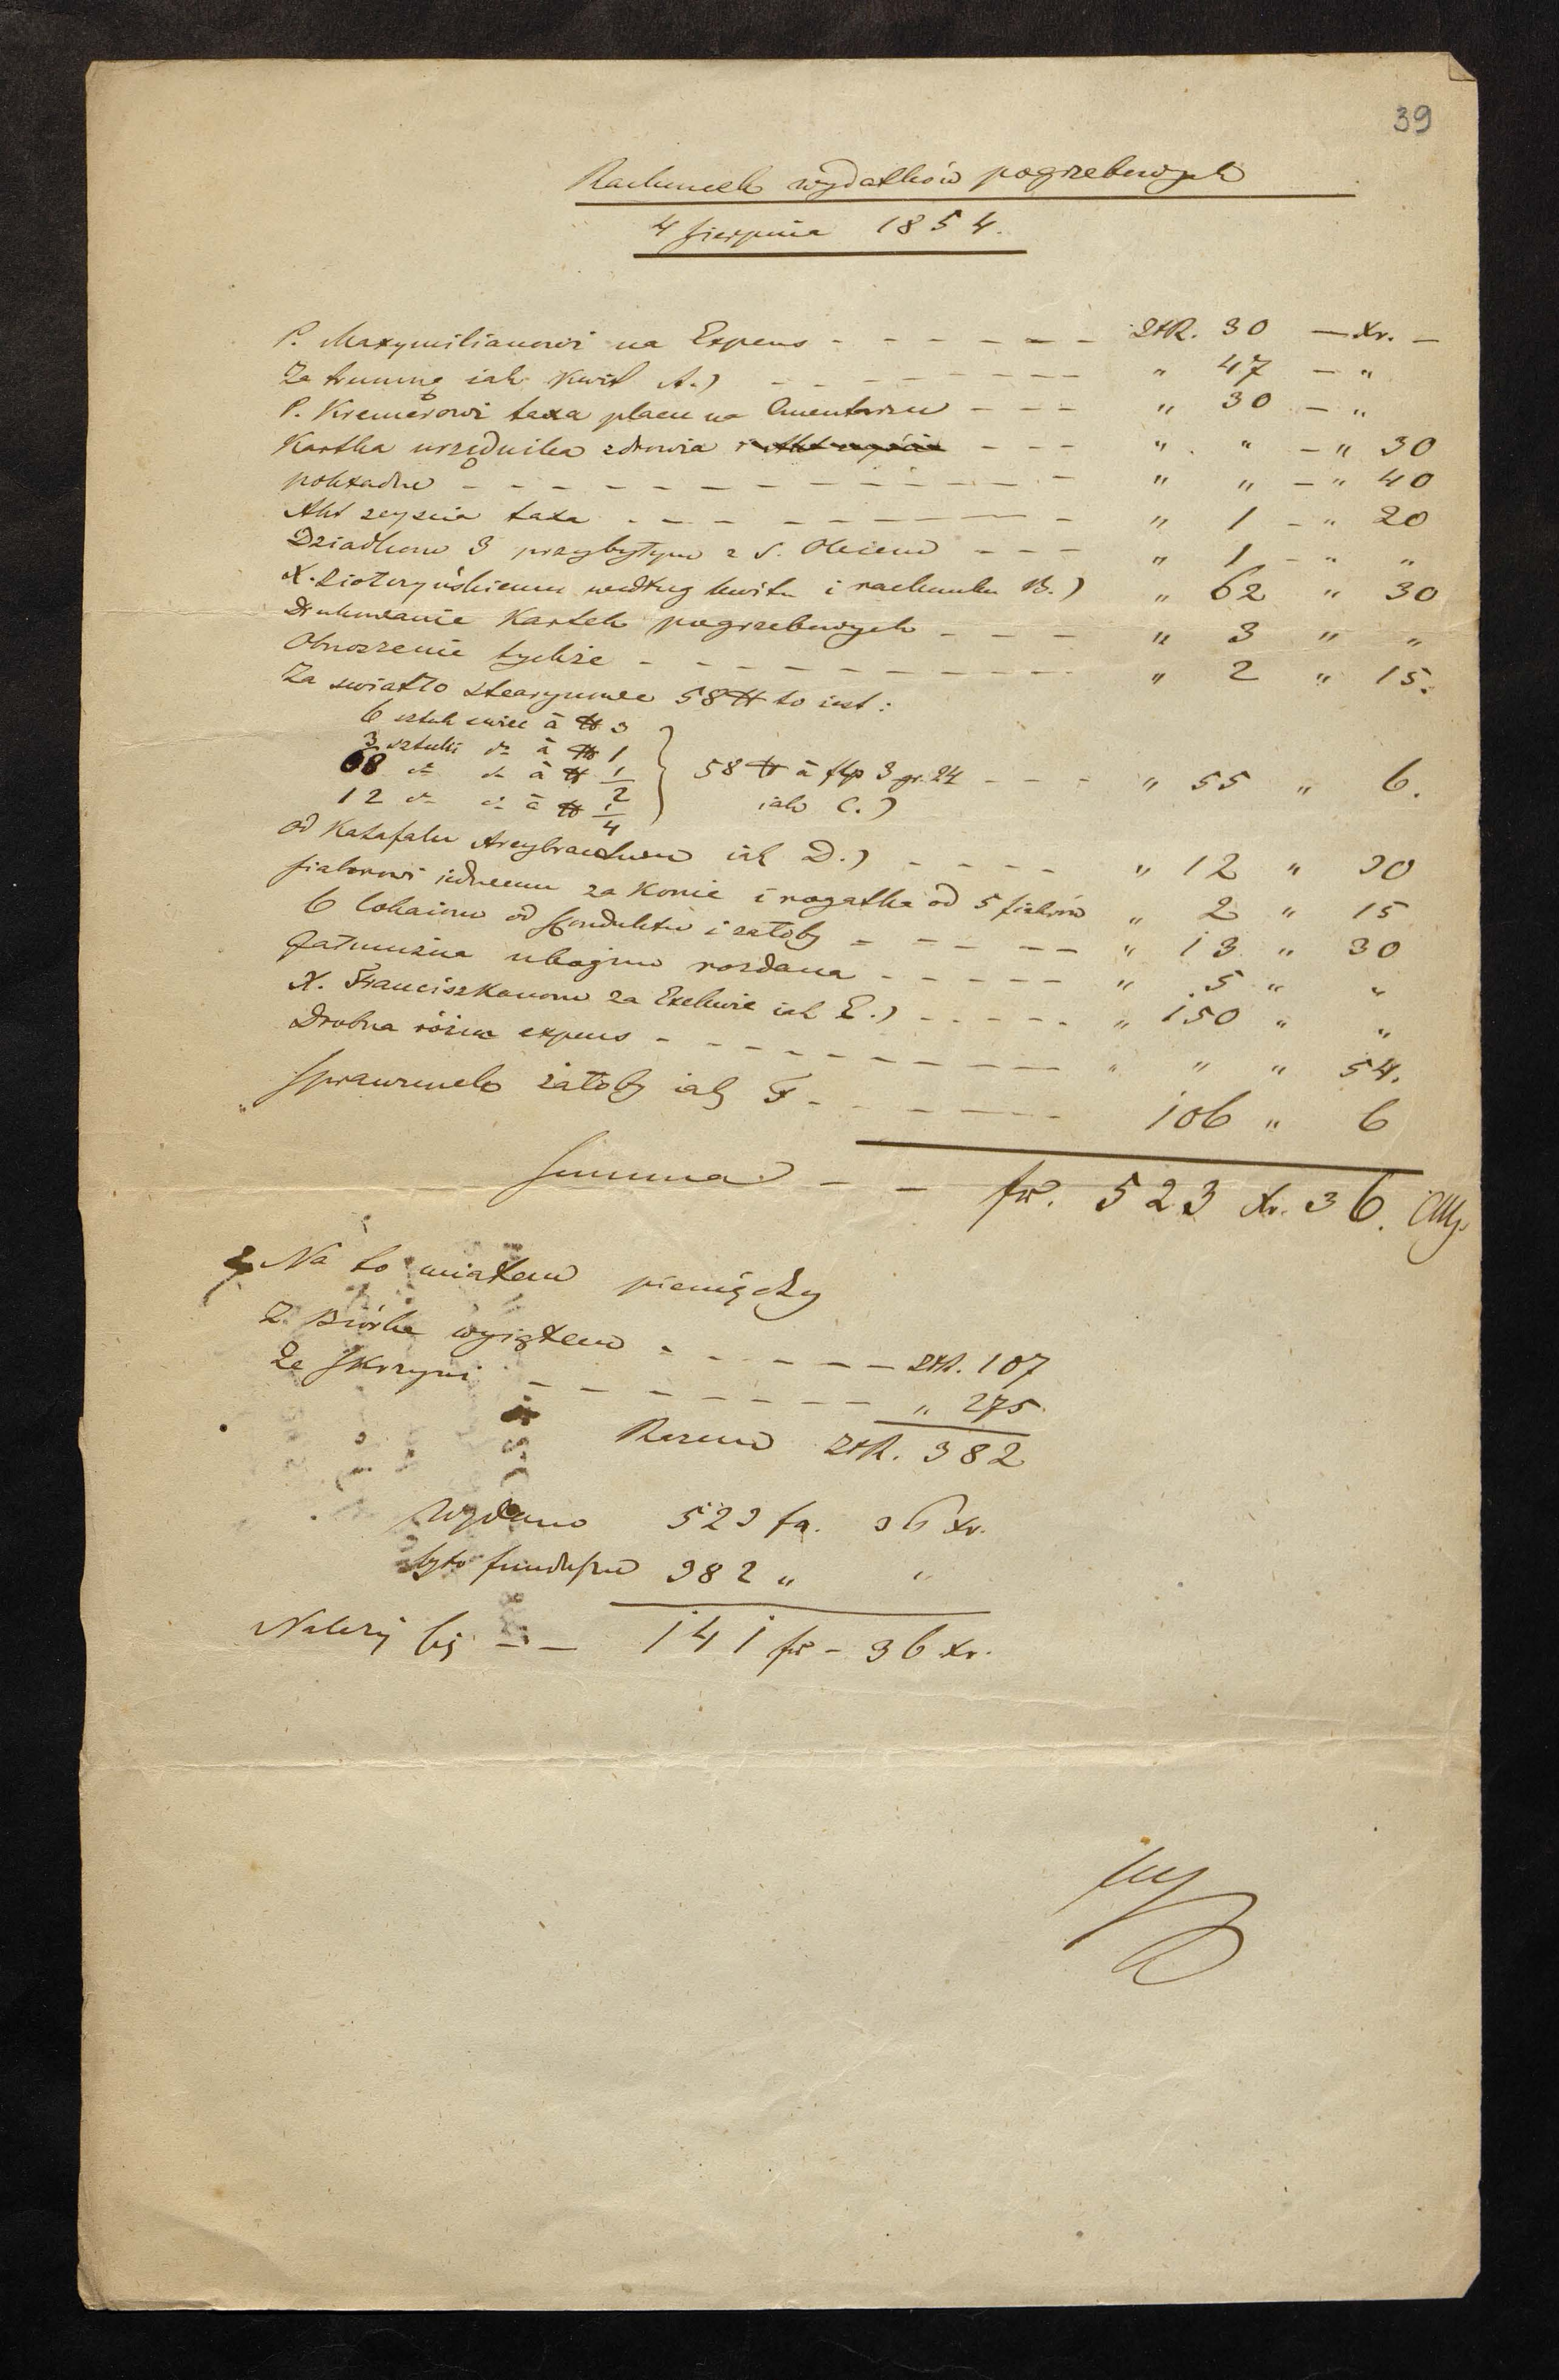 39
Rachunek wydatków pogrzebowych
4 Sierpnia 1854.
P. Maxymilianowi na Expens - - - - - - ZłR. 30 — Xr. —
Za trumnę iak Kwit A.) - - - - - - - - " 47 — "
P. Kremerowi taxa placu na Cmentarzu - - - " 30 — "
Kartka urzędnika zdrowia - - - " " — " 30
pokładne - - - - - - - - - - - - " " — " 40
Akt zeyscia taxa - - - - - - - - " 1 - " 20
Dziadkom 3 przybytym z S. - - - " 1 - " "
X. według kwitu i rachunku B.) " 62 " 30
Drukowanie Kartek pogrzebowych - - - " 3 " "
Obnoszenie tychże - - - - - - - - - - " 2 " 15.
Za swiatło stearynowe 58 ℔ to iest:
6 sztuk swiec à ℔ 3
3 sztuki do à ℔ 1
68 do do à ℔ 1/2 } 58 ℔ à flp 3 gr. 24 - - - " 55 " 6.
12 do do à ℔ 1/4 iak C.)
od Katafalu iak D.) - - - - - " 12 " 30
fiakrowi iednemu za Konie i rogatka od 5 fiakrów " 2 " 15
6 lokaiom od Konduktu i żałoby - - - - - " 13 " 30
Jałmużna ubogim rozdana - - - - - " 5 " "
X. Franciszkanom za Exekwie iak E.) - - - - - " 150 " "
Drobna różna expens - - - - - - - - - - " " " 54.
Sprawunek żałoby iak F - - - - - - 106 " 6
Summa - - fr. 523 Xr. 36.
Na to miałem pieniędzy
Z Biórka wyiąłem - - - - - - ZłR. 107
Ze Skrzyni - - - - - - - - " 275
Razem ZłR. 382
Wydano 523 fr. 36 Xr.
było funduszu 382 " "
Należy się - - 141 fr - 36 Xr.